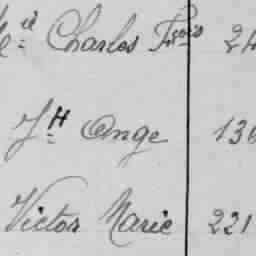 Charles Fçois 24
Jh Ange 136
Victor Marie 221